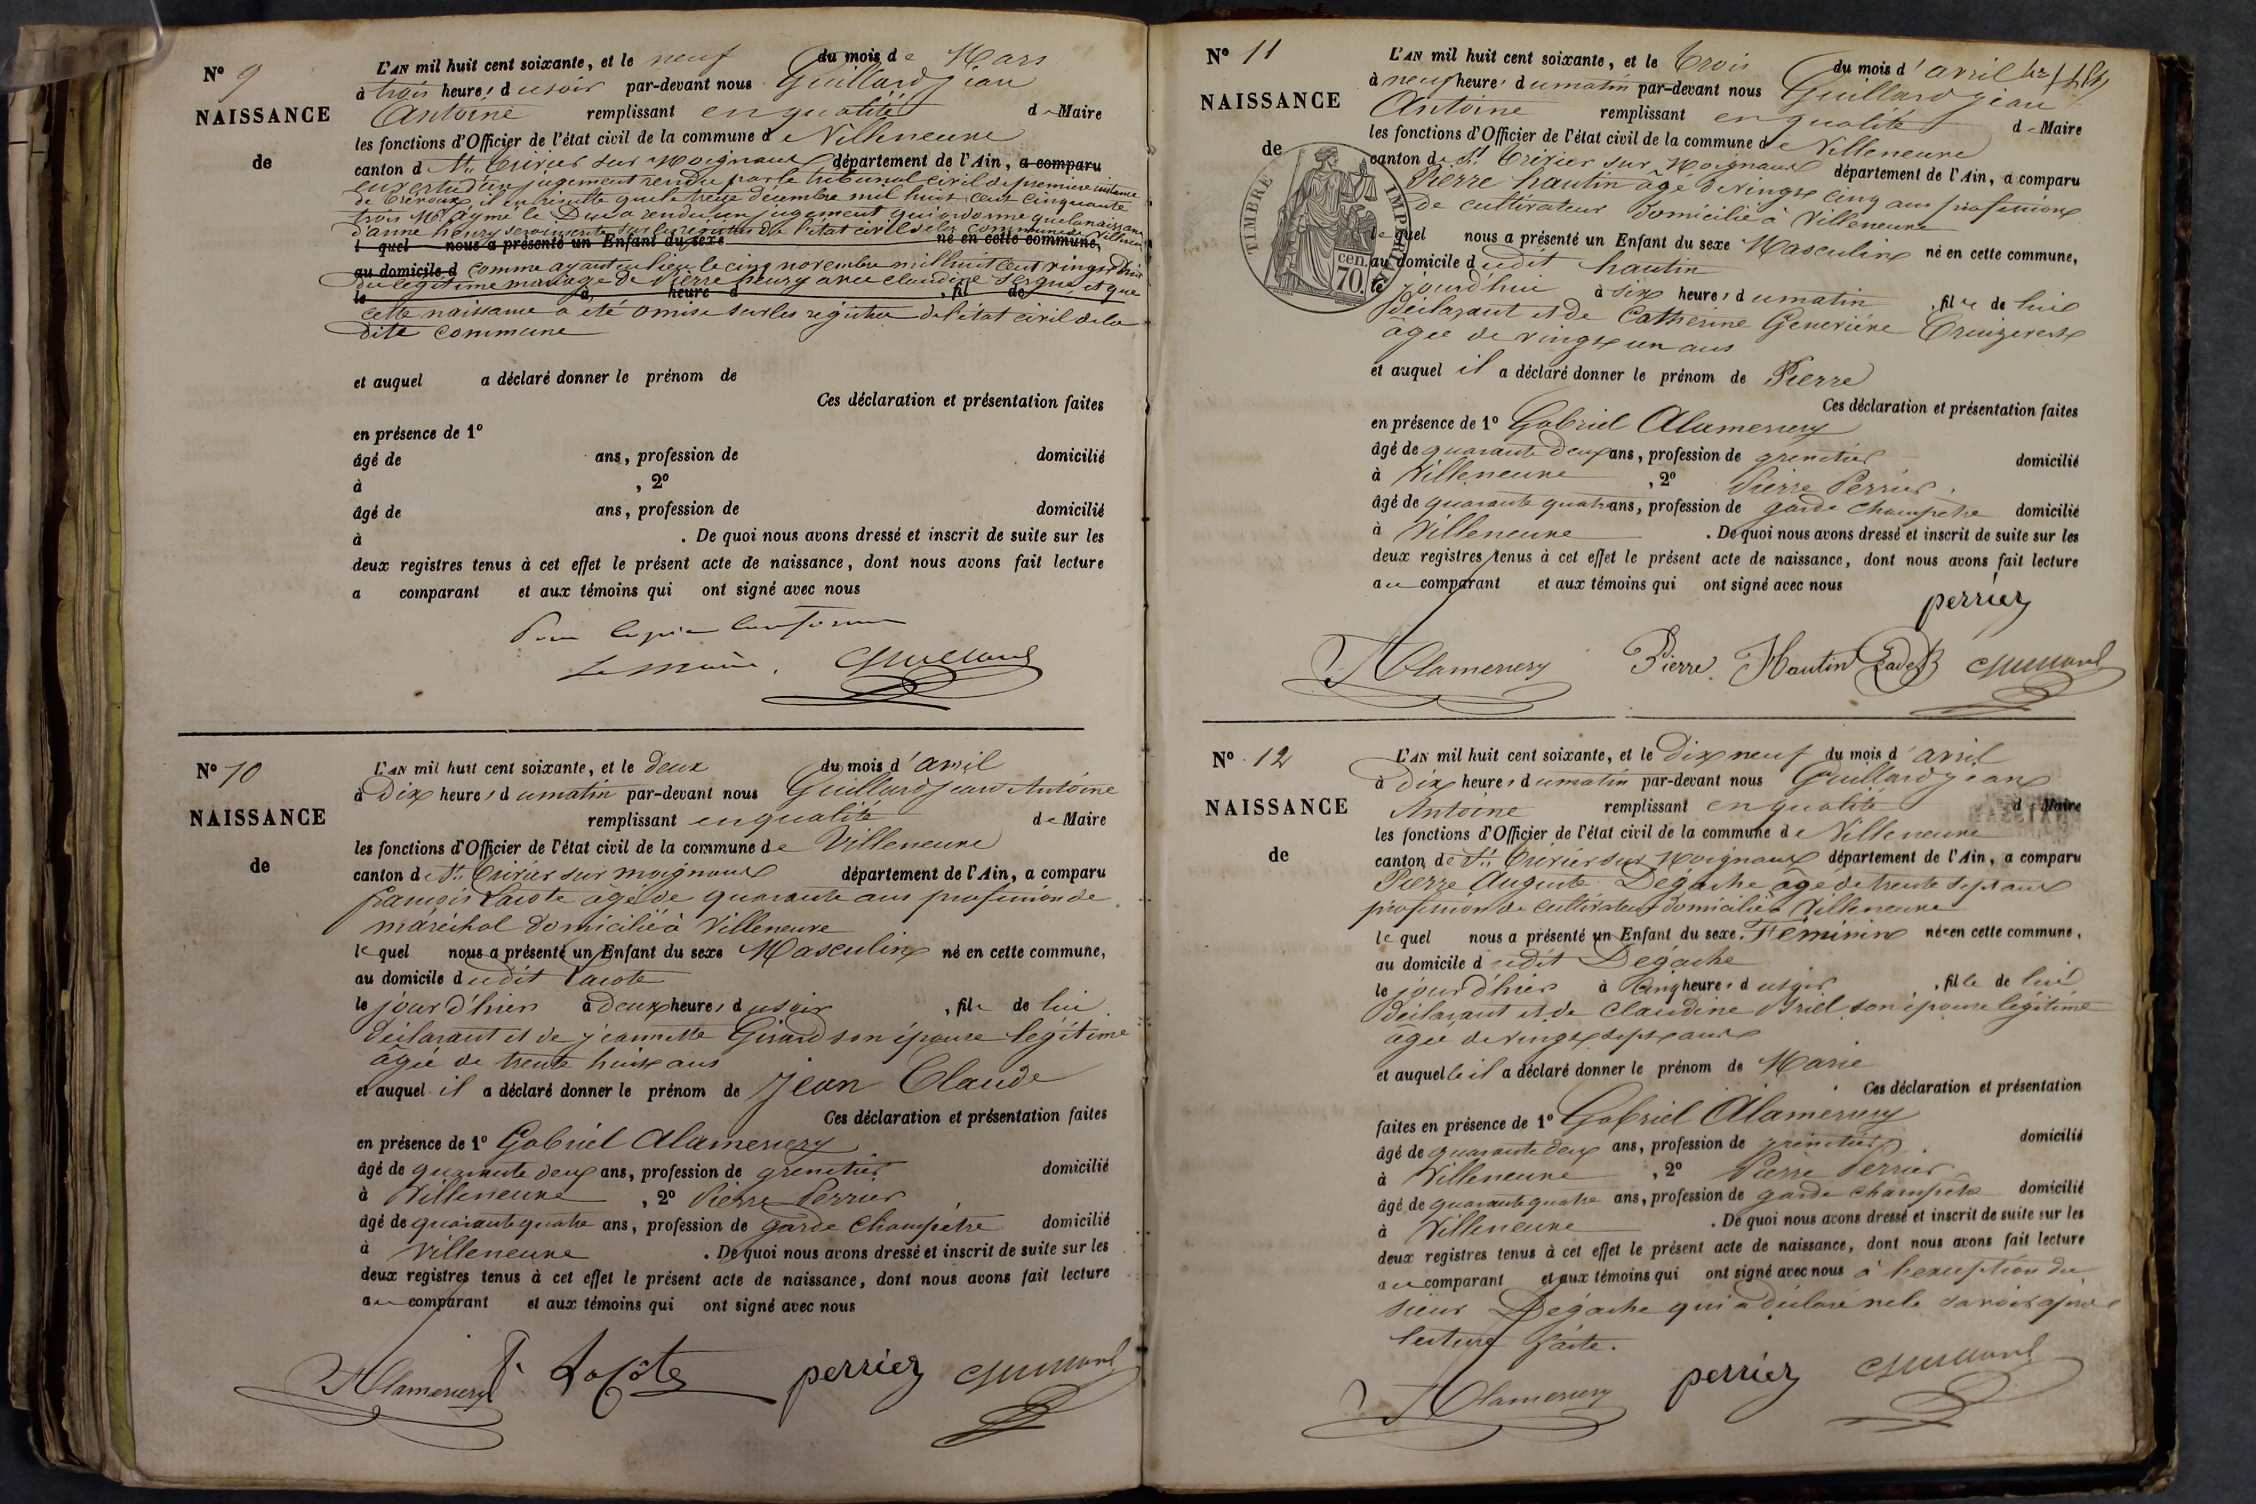 N° 9
NAISSANCE
de
L'AN mil huit cent soixante, et le neuf du mois de Mars
à trois heures du soir par-devant nous Guillard jean
Antoine remplissant en qualité de Maire
les fonctions d'Officier de l'état civil de la commune de Villeneuve
canton de St. Trivier sur Moignans département de l'Ain, a comparu
en vertu d'un jugement rendu par le tribunal civil de première instance
de Trévoux, il en résulte que le treize décembre mil huit cent cinquante
trois Mr. aymé le Duc a rendu un jugement qui ordonne que la naissance
d'anne henry sera inscrite sur les registres de l'état civil de la commune de Villeneuve
l quel nous a présenté un Enfant du sexe né en cette commune,
au domicile d comme ayant eu lieu le cinq novembre mil huit cent vingt huit
du légitime mariage de Pierre henry avec claudine et que
le à heure d , fil de
cette naissance a été omise sur les registres de l'état civil de la
dite commune
et auquel a déclaré donner le prénom de
Ces déclaration et présentation faites
en présence de 1°
âgé de ans, profession de domicilié
à , 2°
âgé de ans, profession de domicilié
à . De quoi nous avons dressé et inscrit de suite sur les
deux registres tenus à cet effet le présent acte de naissance, dont nous avons fait lecture
a comparant et aux témoins qui ont signé avec nous
Pour copie conforme
Le maire, Guillard
N° 10
NAISSANCE
de
L'AN mil huit cent soixante, et le deux du mois d'avril
à Dix heures du matin par-devant nous Guillard jean Antoine
remplissant en qualité de Maire
les fonctions d'Officier de l'état civil de la commune de Villeneuve
canton de St. Trivier sur moignans département de l'Ain, a comparu
françois Lacote âgé de quarante ans profession de
maréchal domicilié à Villeneuve
le quel nous a présenté un Enfant du sexe Masculin né en cette commune,
au domicile dudit Lacote
le jour d'hier à deux heures du soir , fils de lui
déclarant et de jeannette Girard son épouse légitime
âgée de trente huit ans
et auquel il a déclaré donner le prénom de Jean Claude
Ces déclaration et présentation faites
en présence de 1° Gabriel Alamercery
âgé de quarante deux ans, profession de grenetier domicilié
à Villeneuve , 2° Pierre Perrier
âgé de quarante quatre ans, profession de garde champêtre domicilié
à Villeneuve . De quoi nous avons dressé et inscrit de suite sur les
deux registres tenus à cet effet le présent acte de naissance, dont nous avons fait lecture
au comparant et aux témoins qui ont signé avec nous
Alamercery f. Lacôte perrier Guillard
N° 11
NAISSANCE
de
TIMBRE IMPÉRIAL
70. cen.
L'AN mil huit cent soixante, et le Trois du mois d'avril
à neuf heures du matin par-devant nous Guillard jean
Antoine remplissant en qualité de Maire
les fonctions d'Officier de l'état civil de la commune de Villeneuve
canton de St. Trivier sur moignans département de l'Ain, a comparu
Pierre hautin âgé de vingt cinq ans profession
de cultivateur domicilié à Villeneuve
le quel nous a présenté un Enfant du sexe Masculin né en cette commune,
au domicile dudit hautin
le jourd'hui à six heures du matin , fils de lui
déclarant et de Catherine Geneviève
âgée de vingt un ans
et auquel il a déclaré donner le prénom de Pierre
Ces déclaration et présentation faites
en présence de 1° Gabriel Alamercery
âgé de quarante deux ans, profession de grenetier domicilié
à Villeneuve , 2° Pierre Perrier.
âgé de quarante quatre ans, profession de garde champêtre domicilié
à Villeneuve . De quoi nous avons dressé et inscrit de suite sur les
deux registres tenus à cet effet le présent acte de naissance, dont nous avons fait lecture
au comparant et aux témoins qui ont signé avec nous
perrier
Alamercery Pierre Hautin Guillard
N° 12
NAISSANCE
de
L'AN mil huit cent soixante, et le Dix neuf du mois d'avril
à Dix heures du matin par-devant nous Guillard jean
Antoine remplissant en qualité de Maire
les fonctions d'Officier de l'état civil de la commune de Villeneuve
canton de St. Trivier sur Moignans département de l'Ain, a comparu
Pierre Auguste Dégache âgé de trente sept ans
profession de cultivateur domicilié à Villeneuve
le quel nous a présenté un Enfant du sexe Féminin née en cette commune,
au domicile dudit Dégache
le jour d'hier à cinq heures du soir , fille de lui
déclarant et de Claudine Briel son épouse légitime
âgée de vingt sept ans
et auquelle il a déclaré donner le prénom de Marie
Ces déclaration et présentation
faites en présence de 1° Gabriel Alamercery
âgé de quarante deux ans, profession de grenetier domicilié
à Villeneuve , 2° Pierre Perrier
âgé de quarante quatre ans, profession de garde champêtre domicilié
à Villeneuve . De quoi nous avons dressé et inscrit de suite sur les
deux registres tenus à cet effet le présent acte de naissance, dont nous avons fait lecture
au comparant et aux témoins qui ont signé avec nous à l'exception du
sieur Dégache qui a déclaré ne le savoir après
lecture faite.
Alamercery perrier Guillard